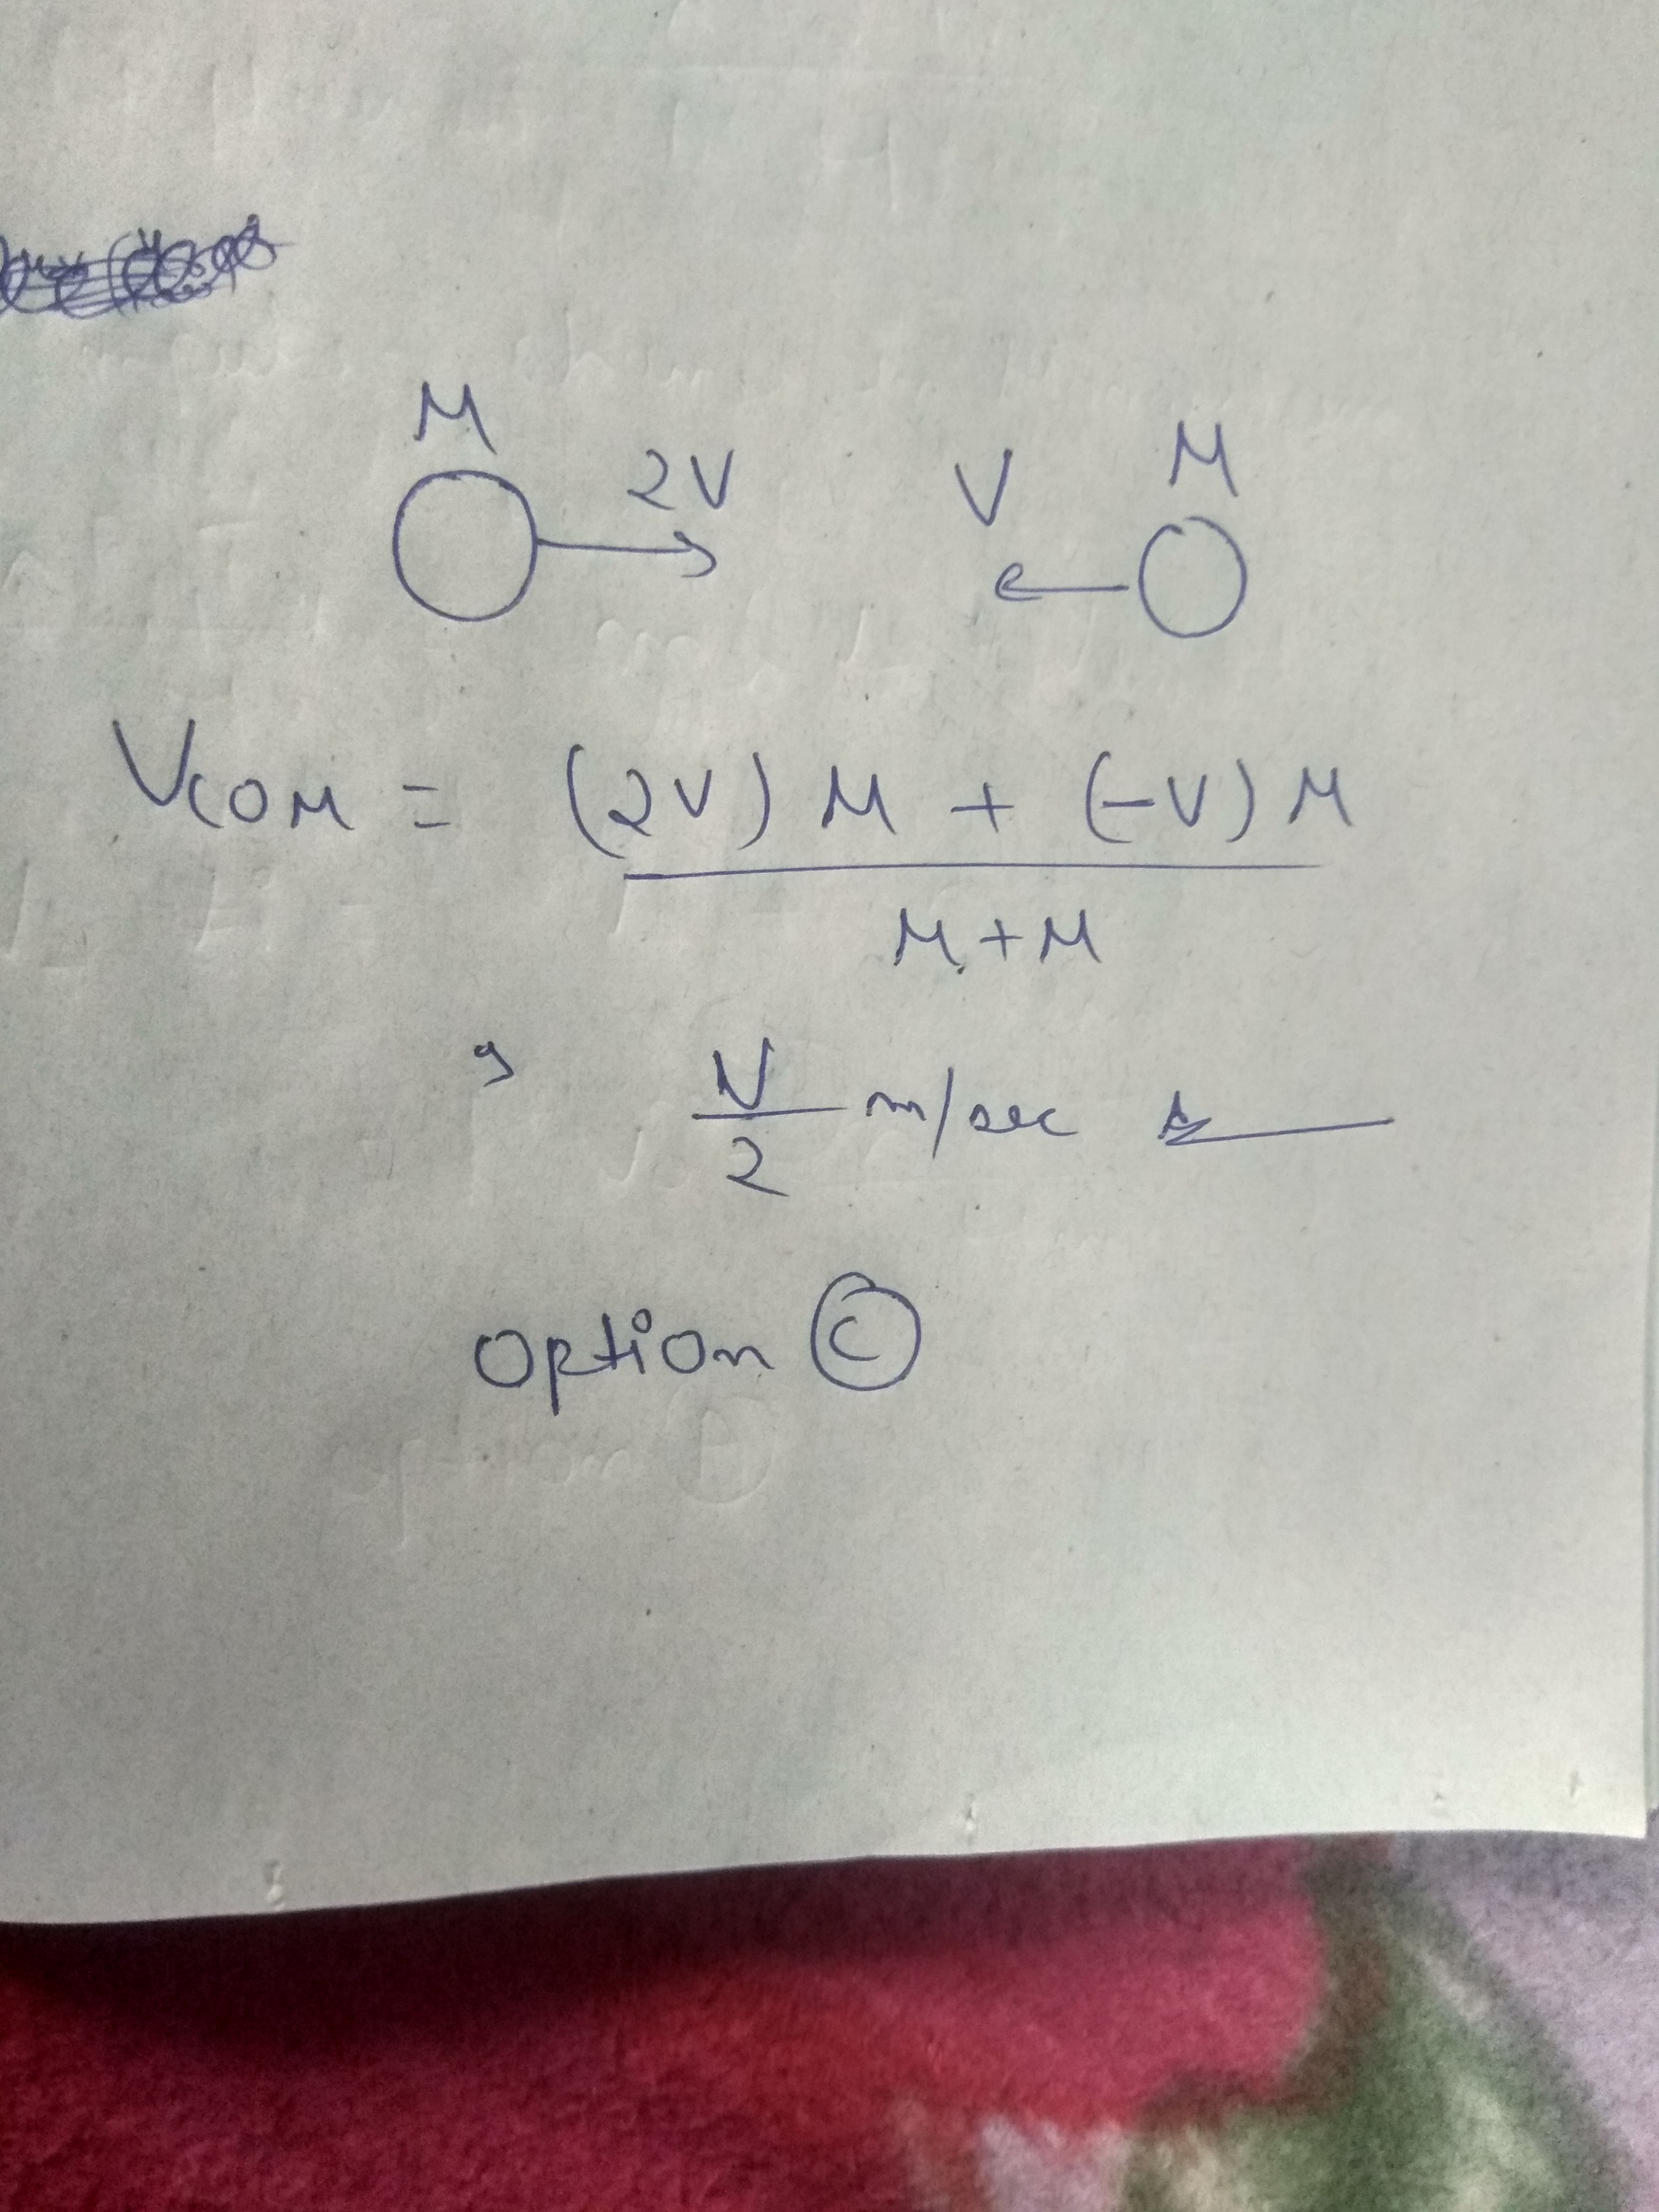 M M
2V V
VCOM = (2V) M + (-V) M
M + M
V
2 m/sec
option C